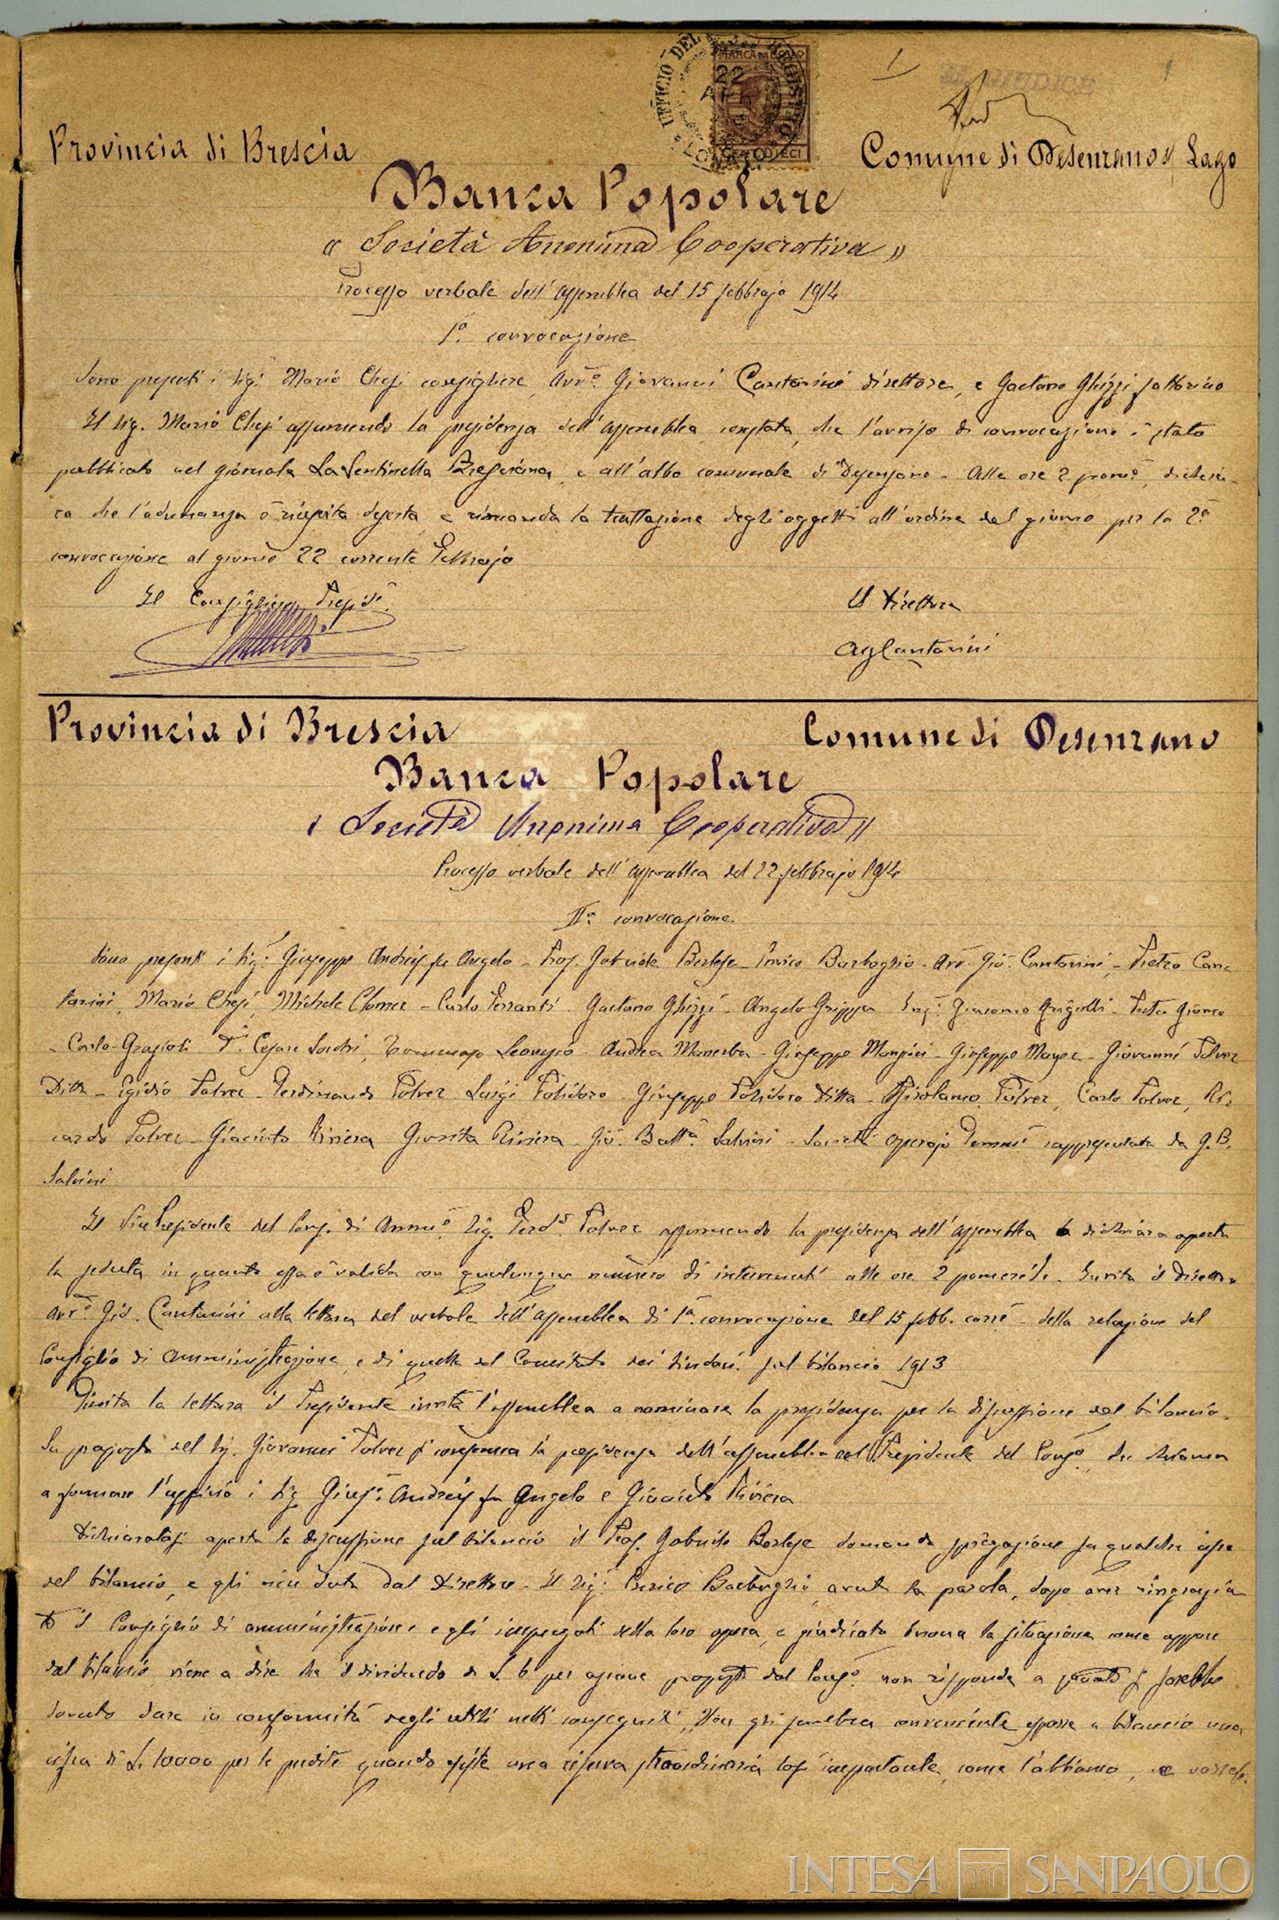 UFFICIO DEL REGISTRO
LONATO
MARCA DA BOLLO
22
IL GIUDICE
1
Provincia di Brescia
Comune di Desenzano s/ Lago
Banca Popolare
"Società Anonima Cooperativa"
Processo verbale dell'assemblea del 15 febbrajo 1914
1ª convocazione
Sono presenti i Sigi. Mario Chesi consigliere, Avvo. Giovanni Cantarini direttore, e Gaetano Ghizzi fattorino
Il Sig. Mario Chesi assumendo la presidenza dell'assemblea constata, che l'avviso di convocazione è stato
pubblicato nel giornale La Sentinella Bresciana, e all'albo comunale di Desenzano - Alle ore 2 pome. dichia-
ra che l'adunanza è riuscita deserta e rimanda la trattazione degli oggetti all'ordine del giorno per la 2ª
convocazione al giorno 22 corrente Febbrajo
Il Consigliere Presidte.
Il Direttore
Cantarini
Provincia di Brescia
Comune di Desenzano
Banca Popolare
"Società Anonima Cooperativa"
Processo verbale dell'assemblea del 22 febbrajo 1914
IIª convocazione.
Sono presenti i Sigi. Giuseppe Andreis fu Angelo - Prof. Gabriele Berlese - Enrico Barboglio - Avv. Gio. Cantarini - Pietro Can-
tarini, Mario Chesi, Michele - Carlo Ferranti - Gaetano Ghizzi - Angelo Grippa Ing. Giacomo Grigolli -
- Carlo Grazioli Dr. Cesare, Tommaso Leonesio - Andrea Manerba - Giuseppe - Giuseppe Mayer - Giovanni Polver
Ditta - Egidio Polver - Ferdinando Polver Luigi Polidoro - Giuseppe Polidoro Ditta - Girolamo Polver, Carlo Polver, Ric-
cardo Polver - Giacinto Riviera - Riviera - Gio. Batta. Salvini - Società operaja rappresentata da G.B.
Salvini
Il Vice Presidente del Cons. di Ammne. Sig. Ferdo. Polver assumendo la presidenza dell'assemblea dichiara aperta
la seduta in quanto essa è valida con qualunque numero di intervenuti alle ore 2 pomeride. Invita il Direttore
Avvo. Gio. Cantarini alla lettura del verbale dell'assemblea di 1ª convocazione del 15 febb. corre. - della relazione del
Consiglio di amministrazione, e di quella del Comitato dei Sindaci sul bilancio 1913
Finita la lettura il Presidente invita l'assemblea a nominare la presidenza per la discussione del bilancio.
Su proposta del Sig. Giovanni Polver si conferma la presidenza dell'assemblea nel Presidente del Conso. che chiama
a formare l'ufficio i Sig. Giuse. Andreis fu Angelo e Giacinto Riviera
Dichiaratasi aperta la discussione sul bilancio il Prof. Gabriele Berlese domanda spiegazione su qualche cifra
del bilancio, e gli vien data dal Direttore - Il Sigr. Enrico Barboglio, avuta la parola, dopo aver ringrazia-
to il Consiglio di amministrazione e gli impiegati della loro opera, e giudicato buona la situazione come appare
dal bilancio viene a dire che il dividendo di L. 6 per azione proposto dal Conso. non risponde a quanto si sarebbe
dovuto dare in conformità degli utili netti conseguiti, Non gli sembra conveniente esporre a bilancio una
cifra di L. 10000 per le perdite quando esiste una riserva straordinaria così importante, come l'abbiamo, e
INTESA SANPAOLO